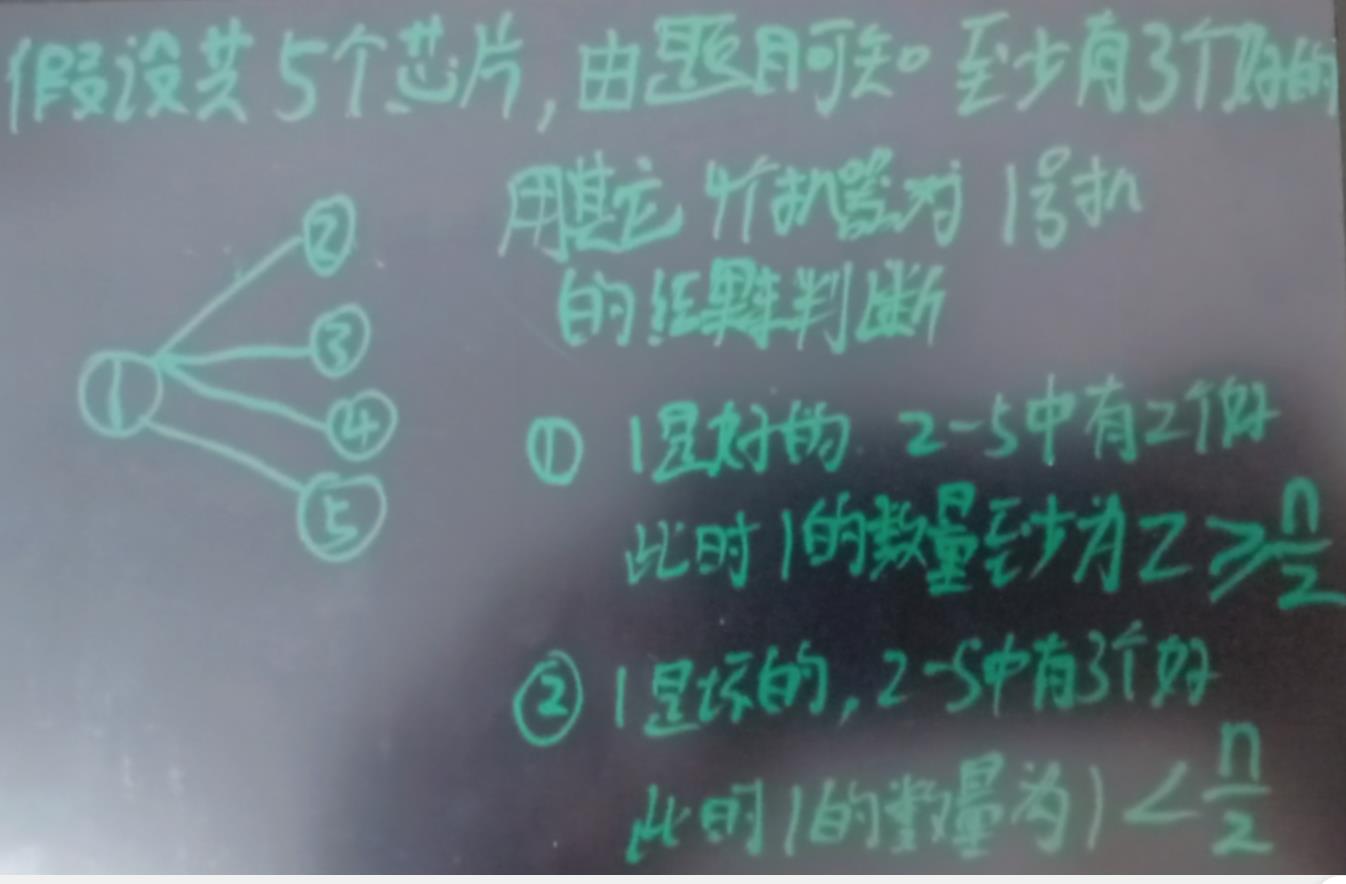 假设共5个芯片,由题目可知 至少有3个好的
用其它4个机器对1号机
的结果判断
①
②
③
④
⑤
① 1是好的 2-5中有2个好
此时1的数量至少为2 ≥ n/2
② 1是坏的,2-5中有3个好
此时1的数量为1 < n/2